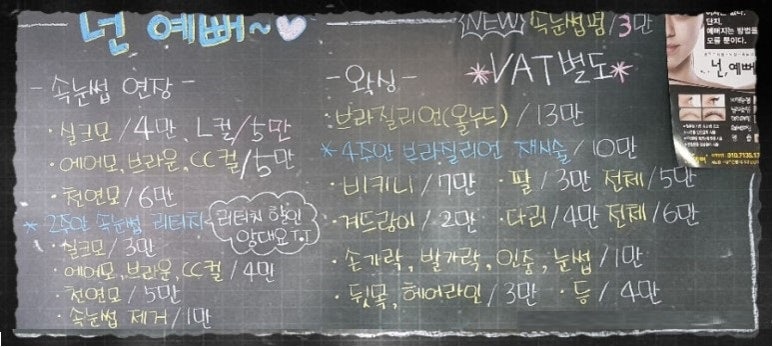 넌 예뻐~
NEW 속눈썹펌/3만
*VAT별도*
- 속눈썹 연장 -
· 실크모/4만, L컬/5만
· 에어모, 브라운, CC컬/5만
· 천연모/6만
* 2주안 속눈썹 리터치
리터치 할인
안대요T.T
· 실크모/3만
· 에어모, 브라운, CC컬/4만
· 천연모/5만
· 속눈썹 제거/1만
- 왁싱 -
브라질리언(올누드)/13만
* 4주안 브라질리언 재시술/10만
· 비키니/7만 · 팔/3만 전체/5만
· 겨드랑이/2만 · 다리/4만 전체/6만
· 손가락, 발가락, 인중, 눈썹/1만
· 뒷목, 헤어라인/3만 · 등/4만
단지,
예뻐지는 방법을
모를 뿐이다.
넌, 예뻐